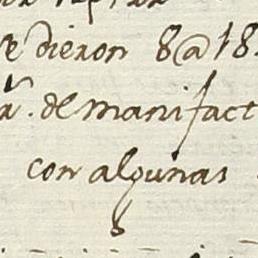 se dieron 8@18
r. de manifact
con algunas
8